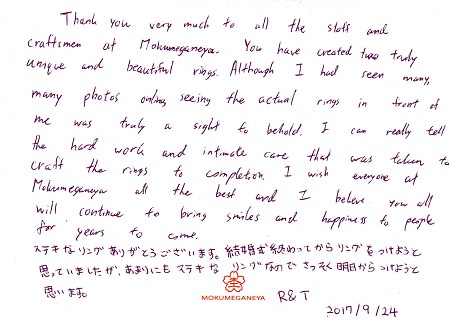 Thank you very much to all the staffs and
craftsmen at Mokumeganeya. You have created two truly
unique and beautiful rings. Although I had seen many,
many photos online, seeing the actual rings in front of
me was truly a sight to behold. I can really tell
the hard work and intimate care that was taken to
craft the rings to completion. I wish everyone at
Mokumeganeya all the best and I believe you all
will continue to bring smiles and happiness to people
for years to come.
ステキなリングありがとうございます。結婚式終わってからリングをつけようと
思っていましたが、あまりにもステキなリングなのでさっそく明日からつけようと
思います。
MOKUMEGANEYA
R&T
2017/9/24